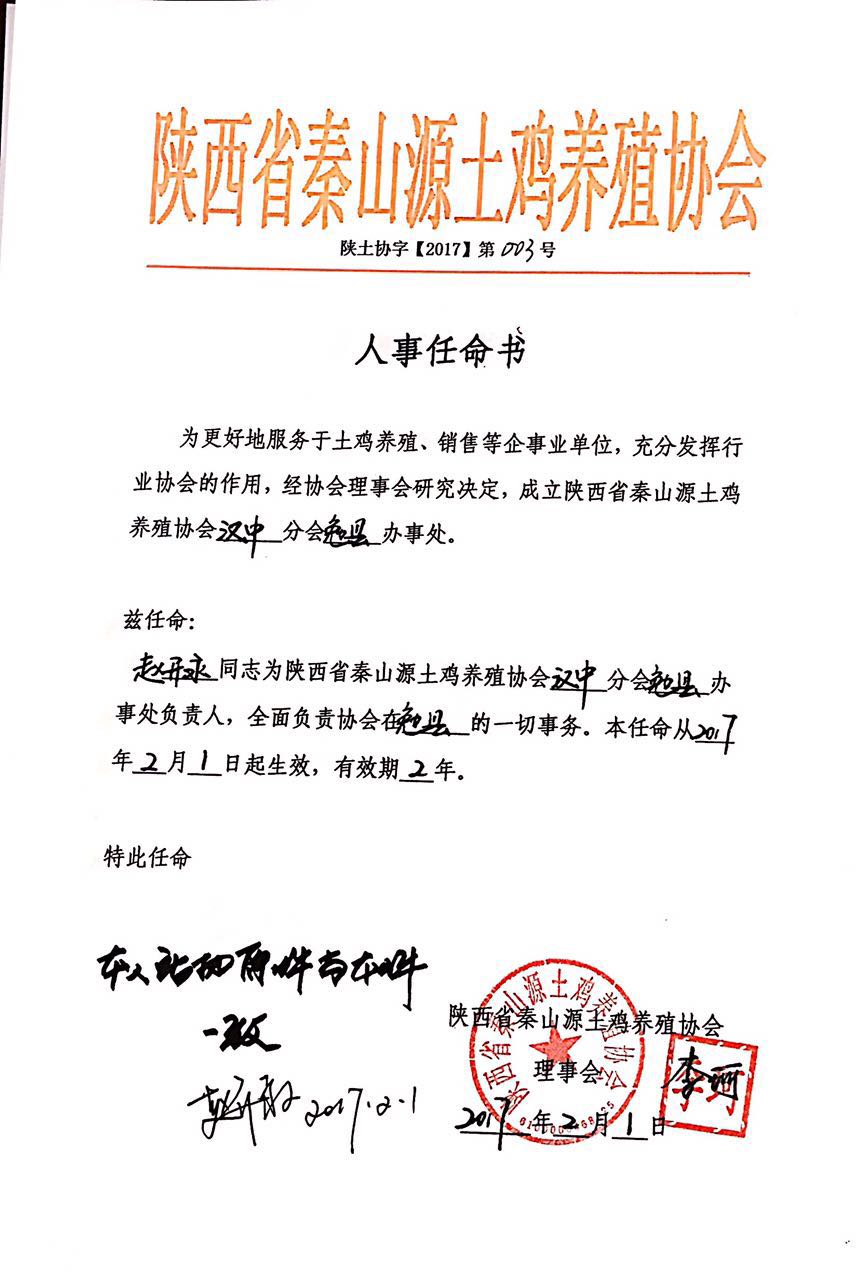 陕西省秦山源土鸡养殖协会
陕土协字【2017】第003号
人事任命书
为更好地服务于土鸡养殖、销售等企事业单位，充分发挥行
业协会的作用，经协会理事会研究决定，成立陕西省秦山源土鸡
养殖协会汉中分会勉县办事处。
兹任命：
赵开永同志为陕西省秦山源土鸡养殖协会汉中分会勉县办
事处负责人，全面负责协会在勉县的一切事务。本任命从2017
年2月1日起生效，有效期2年。
特此任命
本人 与本件
一致
2017.2.1
陕西省秦山源土鸡养殖协会
陕西省秦山源土鸡养殖协会
理事会
李珂
李珂
2017年2月1日